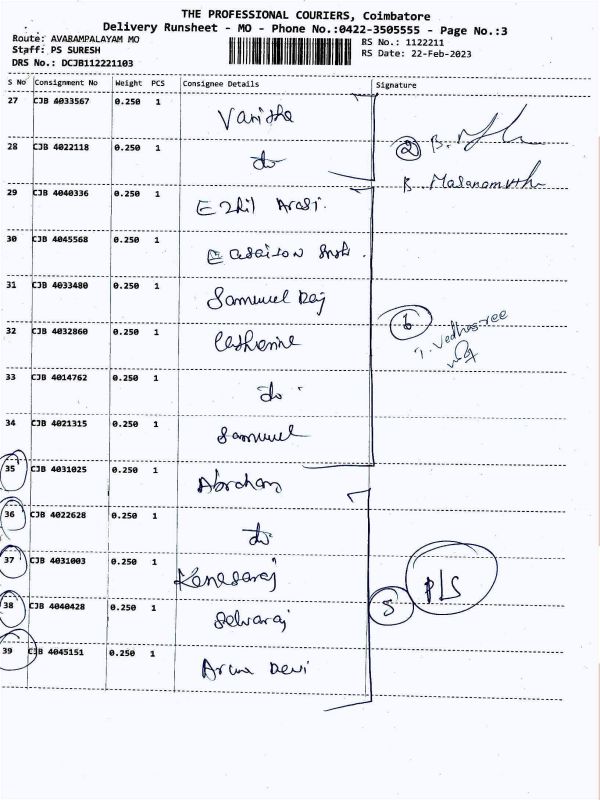 THE PROFESSIONAL COURIERS, Coimbatore
Delivery Runsheet - MO - Phone No.:0422-3505555 - Page No.:3
Route: AVARAMPALAYAM MO
Staff: PS SURESH
DRS No.: DCJB112221103
RS No.: 1122211
RS Date: 22-Feb-2023
S No Consignment No Weight PCS Consignee Details Signature
27 CJB 4033567 0.250 1 Vanitha
28 CJB 4022118 0.250 1 do
2 B.
29 CJB 4040336 0.250 1 Ezhil Arasi.
30 CJB 4045568 0.250 1
31 CJB 4033480 0.250 1 Samuvel Raj
32 CJB 4032860 0.250 1 Catherine
6 T. Vedhasree
33 CJB 4014762 0.250 1 do
34 CJB 4021315 0.250 1 Samuvel
35 CJB 4031025 0.250 1 Abraham
36 CJB 4022628 0.250 1 do
37 CJB 4031003 0.250 1 Kanesaraj
38 CJB 4040428 0.250 1 Selvaraj
5 P/S
39 CJB 4045151 0.250 1 Aruna Devi